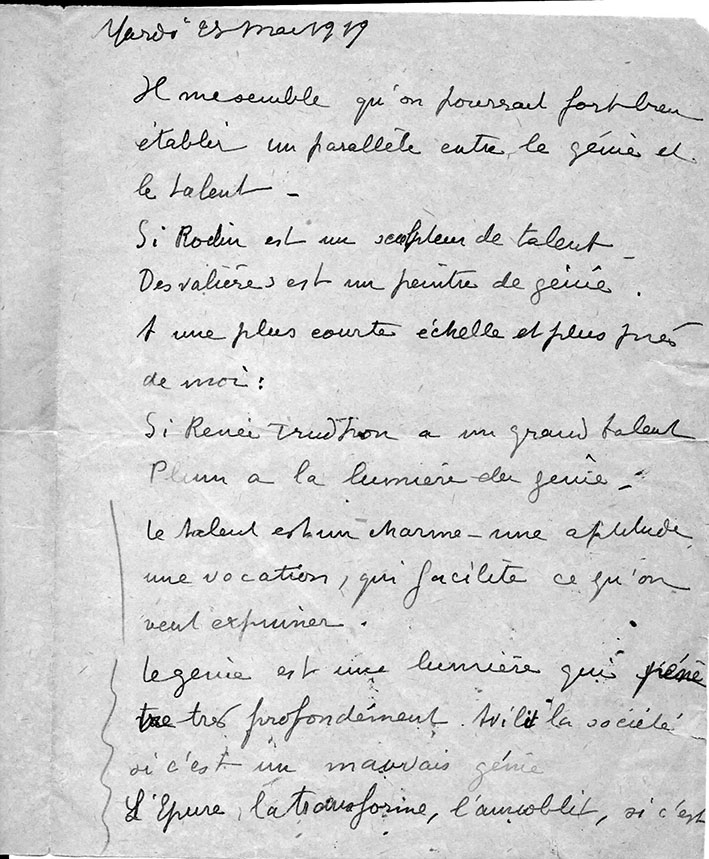 Mardi 25 Mai 1919
Il me semble qu'on pourrait fort bien
établir un parallèle entre le génie et
le talent -
Si Rodin est un sculpteur de talent
Desvalières est un peintre de génie.
A une plus courte échelle et plus près
de moi :
Si Renée Trudhon a un grand talent
Plum a la lumière du génie -
le talent est un charme - une aptitude
une vocation, qui facilite ce qu'on
veut exprimer.
le génie est une lumière qui pénè
tre très profondément. Avilit la société
si c'est un mauvais génie
L'Epure, la transforme, l'annoblit, si c'est